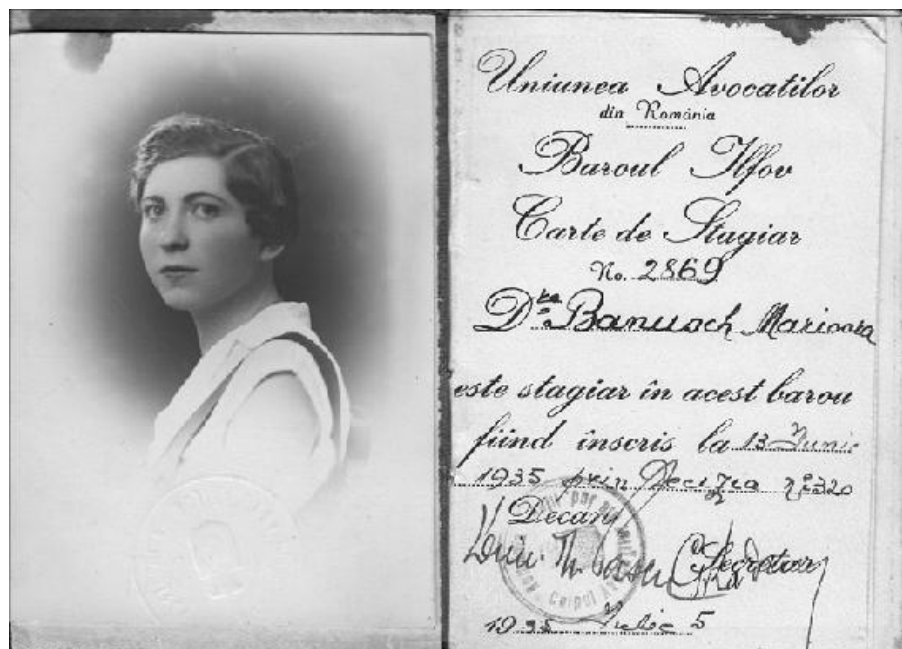 Uniunea Avocatilor
din România
Baroul Ilfov
Carte de Stagiar
No. 2869
D^ra Banusch Marioara
este stagiar în acest barou
fiind înscris la 13 Iunie
1935 prin Decizia 320
Decan
Secretar
1935 Iulie 5